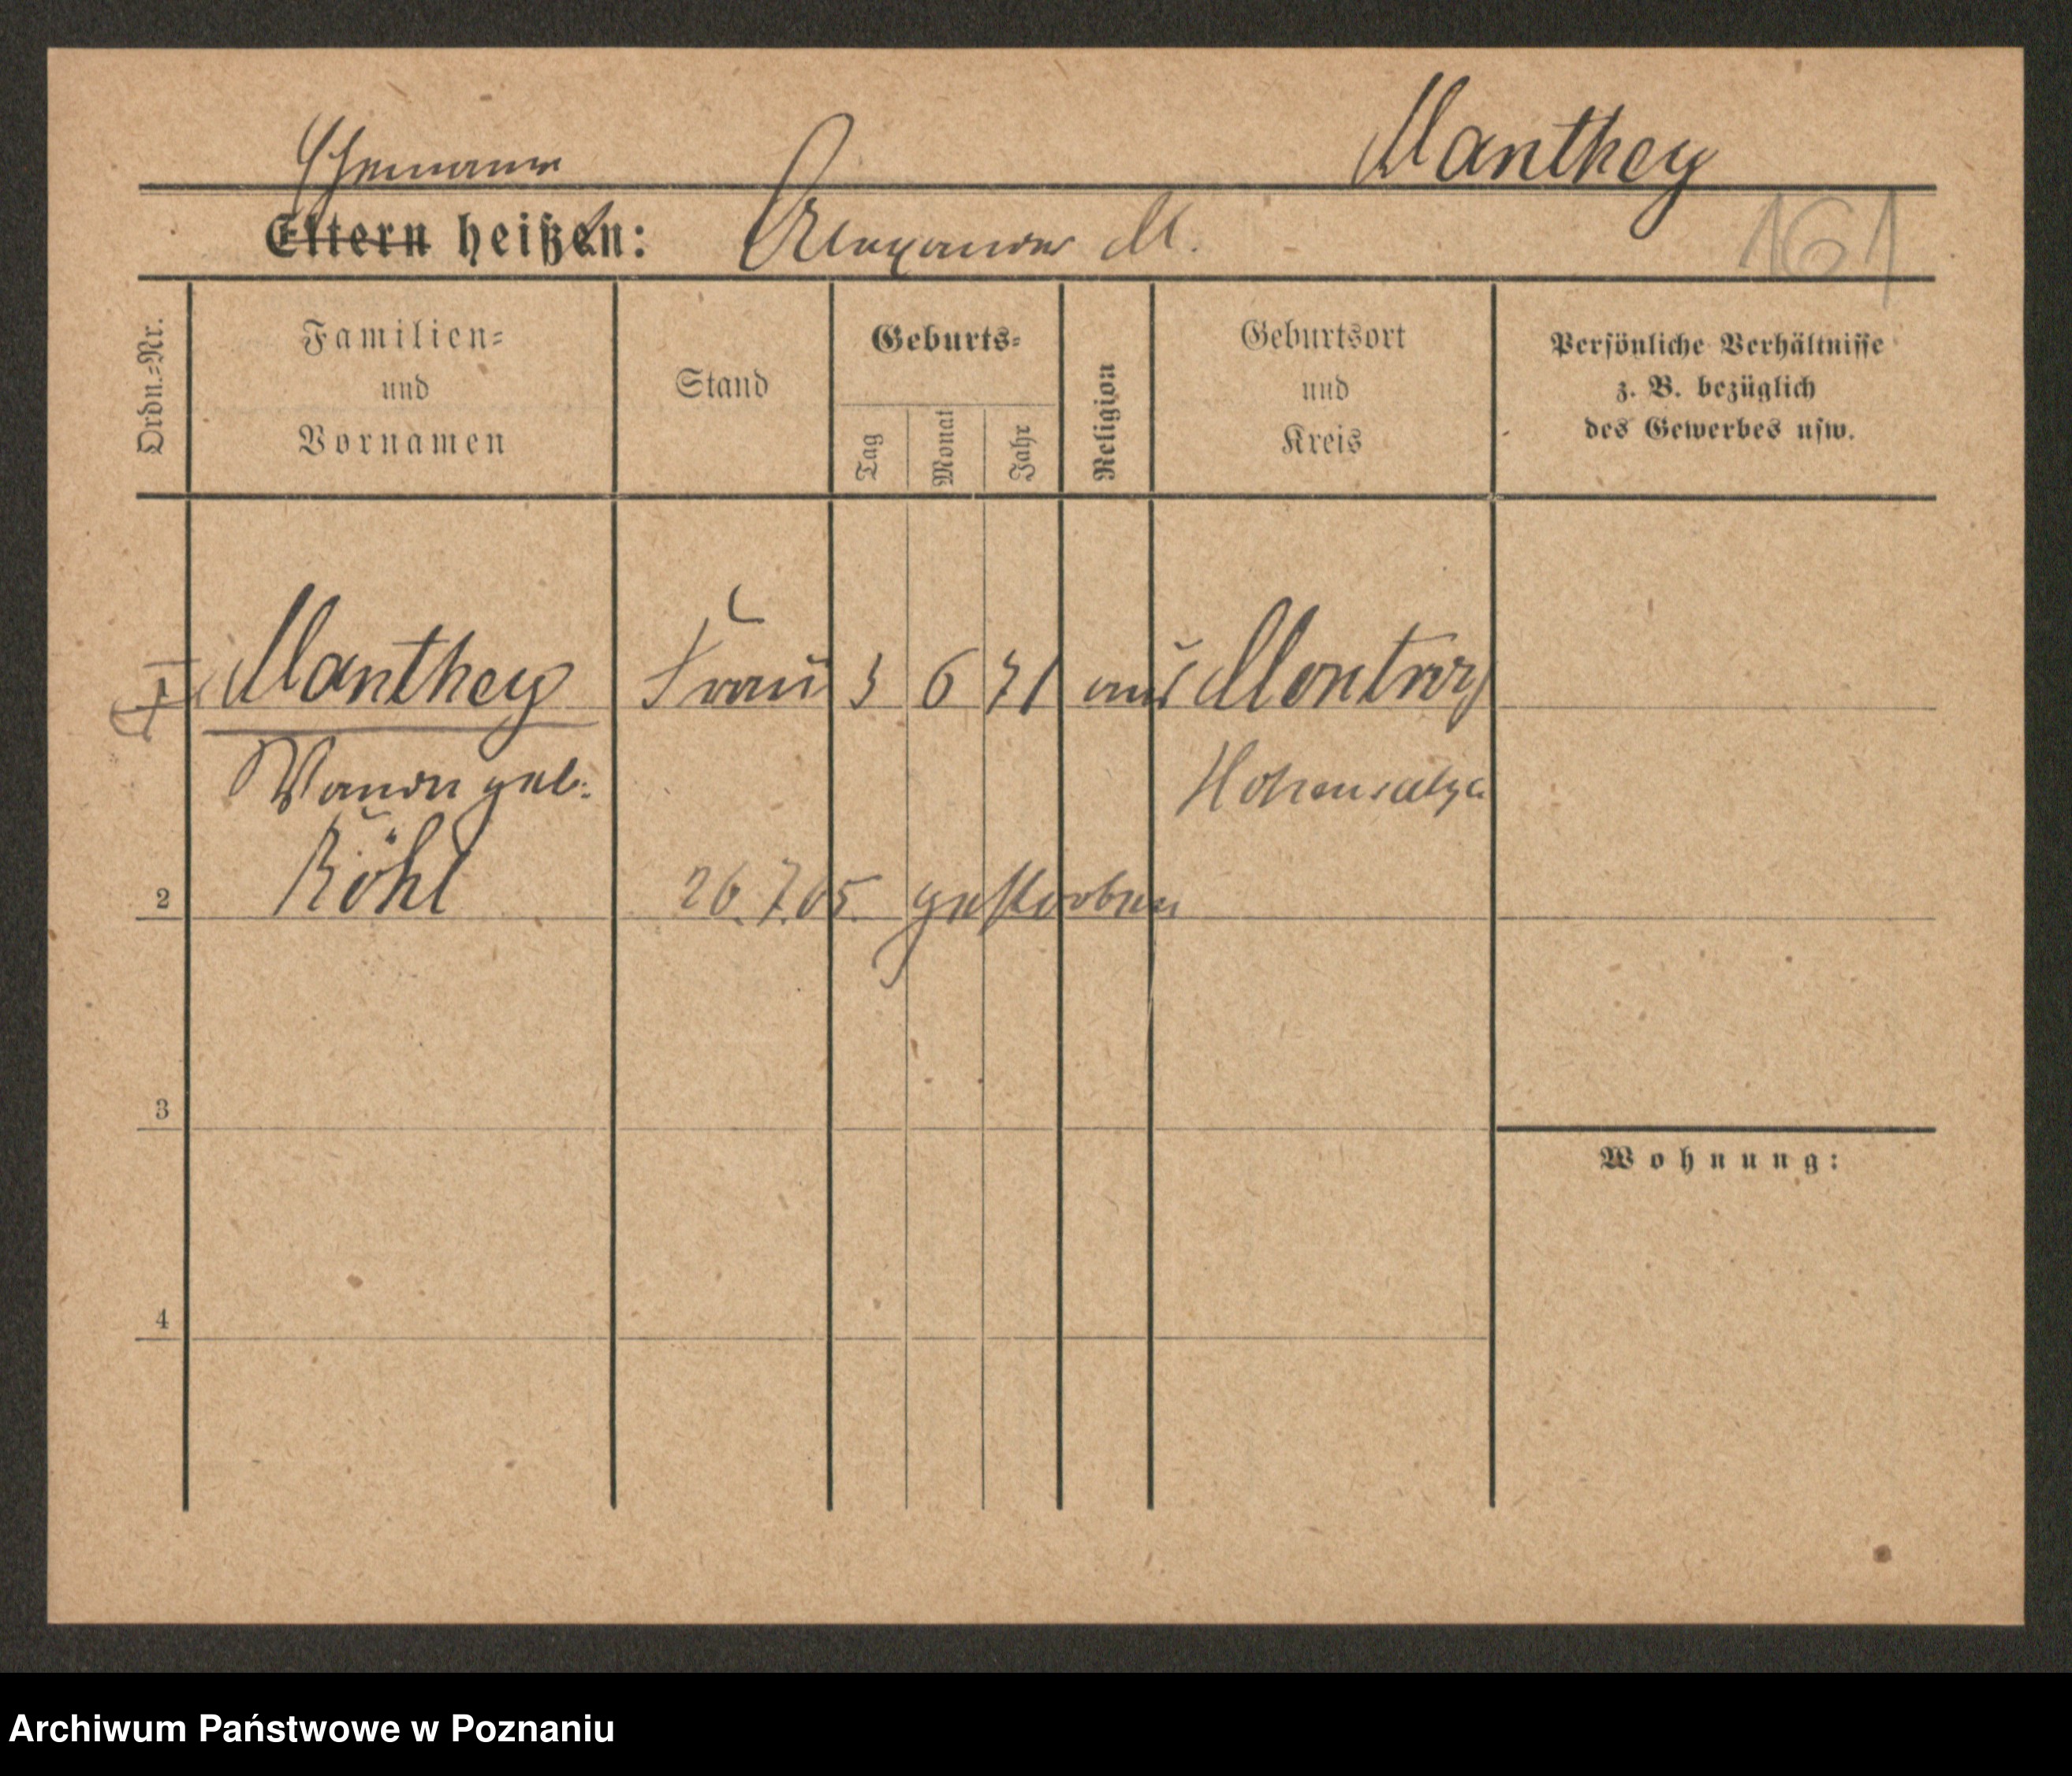 Manthey
Ehemann
Eltern heißen: Alexander M.
161
Ordn.-Nr.
Familien-
und
Vornamen
Stand
Geburts-
Tag
Monat
Jahr
Religion
Geburtsort
und
Kreis
Persönliche Verhältnisse
z. B. bezüglich
des Gewerbes usw.
1 Manthey Frau 3 6 71 Montwy
Wanda geb. Hohensalza
Röhl
2 26.7.05. gestorben
3
Wohnung:
4
Archiwum Państwowe w Poznaniu